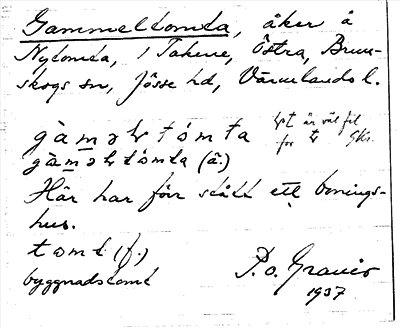 Gammeltomta, åker å
Nytomta, 1 Takene, Östra, Brun-
skogs sn, Jösse hd, Värmlands l.
gàməɫtómta
gàməɫtómta (å.)
är väl fel
för Gks.
Här har förr stått ett bonings-
hus.
tomt (f.)
byggnadstomt
P. o. Gravier
1937